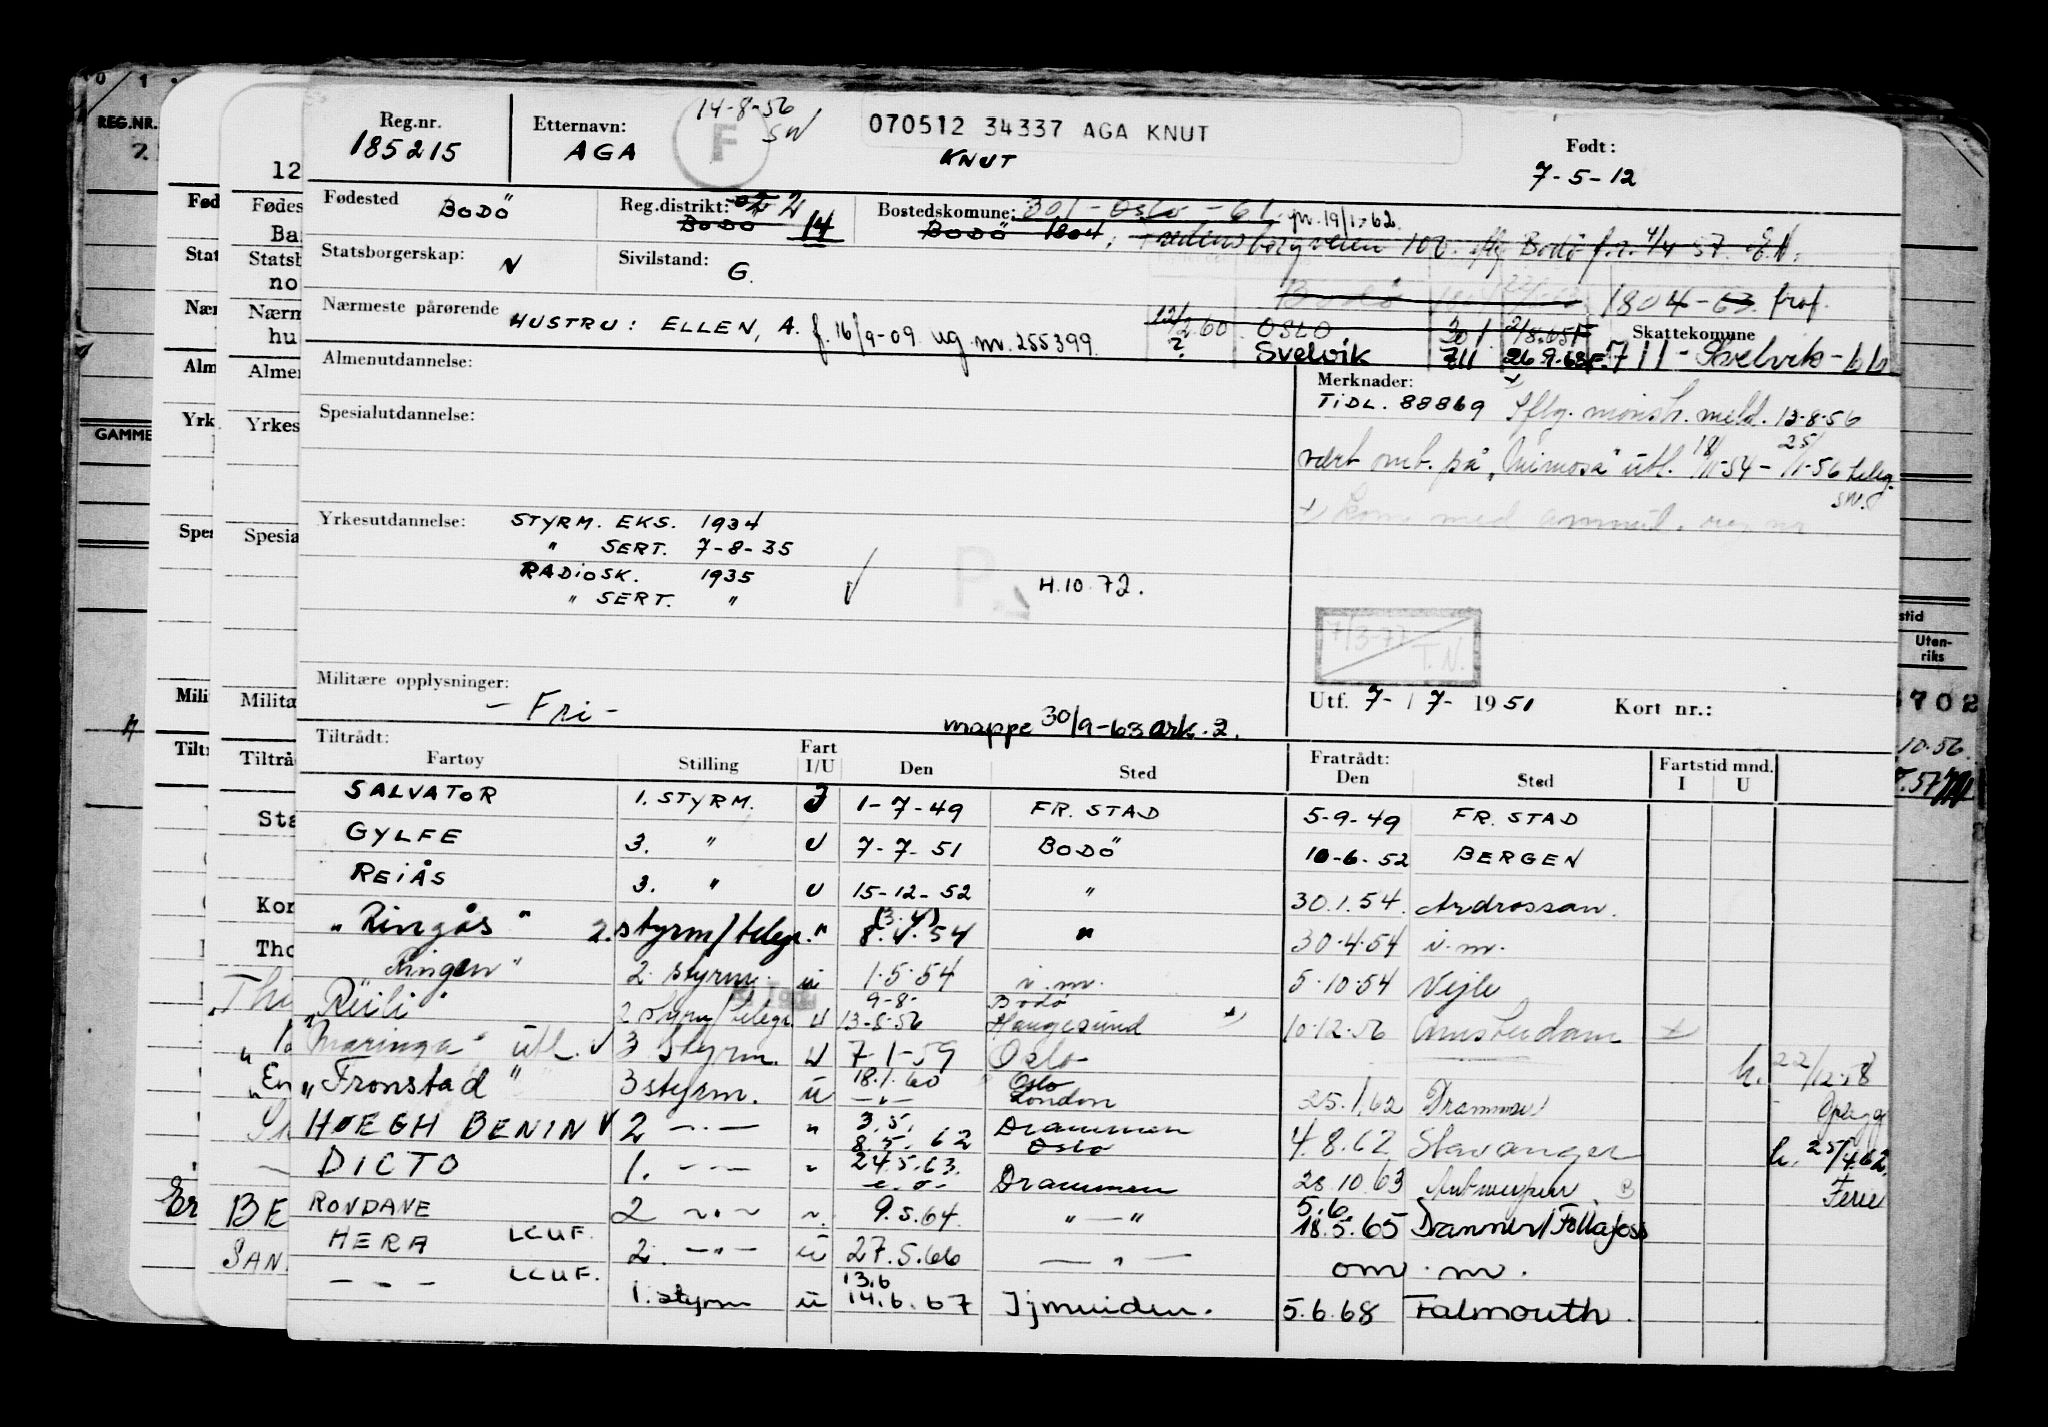 14-8-56
SW
F
070512 34337 AGA KNUT
Reg.nr. 185215
Etternavn: AGA KNUT
Født: 7-5-12
Fødested BODÖ
Reg.distrikt: 2
BODÖ 14
Bostedskomune: 301 - Oslo - 61. pr. 19/1-62.
BODÖ 1804, 100. iflg Bodø f.r. 4/4 57.
Statsborgerskap: N
Sivilstand: G.
1804 - 63. frof.
Nærmeste pårørende HUSTRU: ELLEN, A. f. 16/9-09 ug nr. 255399
22/2.60 OSLO 301 2/8.65F
Skattekomune
? Svelvik 711 26.9.68F. 711 - Svelvik - 66
Almenutdannelse:
Merknader:
TIDL. 88869 Iflg. mønstr. meld. 13-8-56
Spesialutdannelse:
vært omb. på "Mimosa" utl. 18/11-54 - 25/1-56 teleg.
Yrkesutdannelse: STYRM. EKS. 1934
" SERT. 7-8-35
RADIOSK. 1935
" SERT. "
H.10.72.
7/3-77
T.N.
Militære opplysninger:
- Fri -
mappe 30/9-63 ark. 2.
Utf. 7- / 7- 1951
Kort nr.:
Tiltrådt:
Fartøy Stilling Fart I/U Den Sted Fratrådt: Den Sted Fartstid mnd. I U
SALVATOR 1. STYRM. I 1-7-49 FR. STAD 5-9-49 FR. STAD
GYLFE 3. " U 7-7-51 BODÖ 10-6-52 BERGEN
REIÅS 3. " U 15-12-52 " 30.1.54. Ardrossan.
"Ringås" 2. styrm/telegr. " (3.4) 8.4.54 " 30.4.54 i.m.
Ringen" 2. styrm. u 1.5.54 i.m. 5.10.54 Vejle
"Reili" 2 styrm/telegr U 9-8- 13-8-56 Bodø Haugesund 10.12.56 Amsterdam
"Maringa" utl. 3 styrm. U 7-1-59 Oslo h. 22/12.58
"Fronstad" 3 styrm. u 18.1.60 Oslo London 25.1.62 Drammen
HOEGH BENIN 2 -"- " 3.5. 8.5.62 Drammen Oslo 4.8.62 Stavanger h. 25/4.62,
DICTO 1. -"- " 24.5.63. Drammen 28.10.63 Antwerpen Ferie
RONDANE 2 -"- ". 9.5.64. " - " 5.6. 18.5.65 Drammen/Follafoss
HERA LCUF. 2. -"- u 27.5.66 - " - om.m.
- - - LCUF. 1. styrm u 13.6 14.6.67 Ijmuiden. 5.6.68 Falmouth.
REG.NR.
GAMME
Fød
Stat
Nær
Alm
Yrk
Spe
Mili
Tilt
12
Fødes
Ba
Statsb
no
Nærm
hu
Almer
Yrkes
Spesia
Militæ
Tiltrå
Sta
Kor
Tho
BE
SAN
stid
Uten-
riks
702
10.56